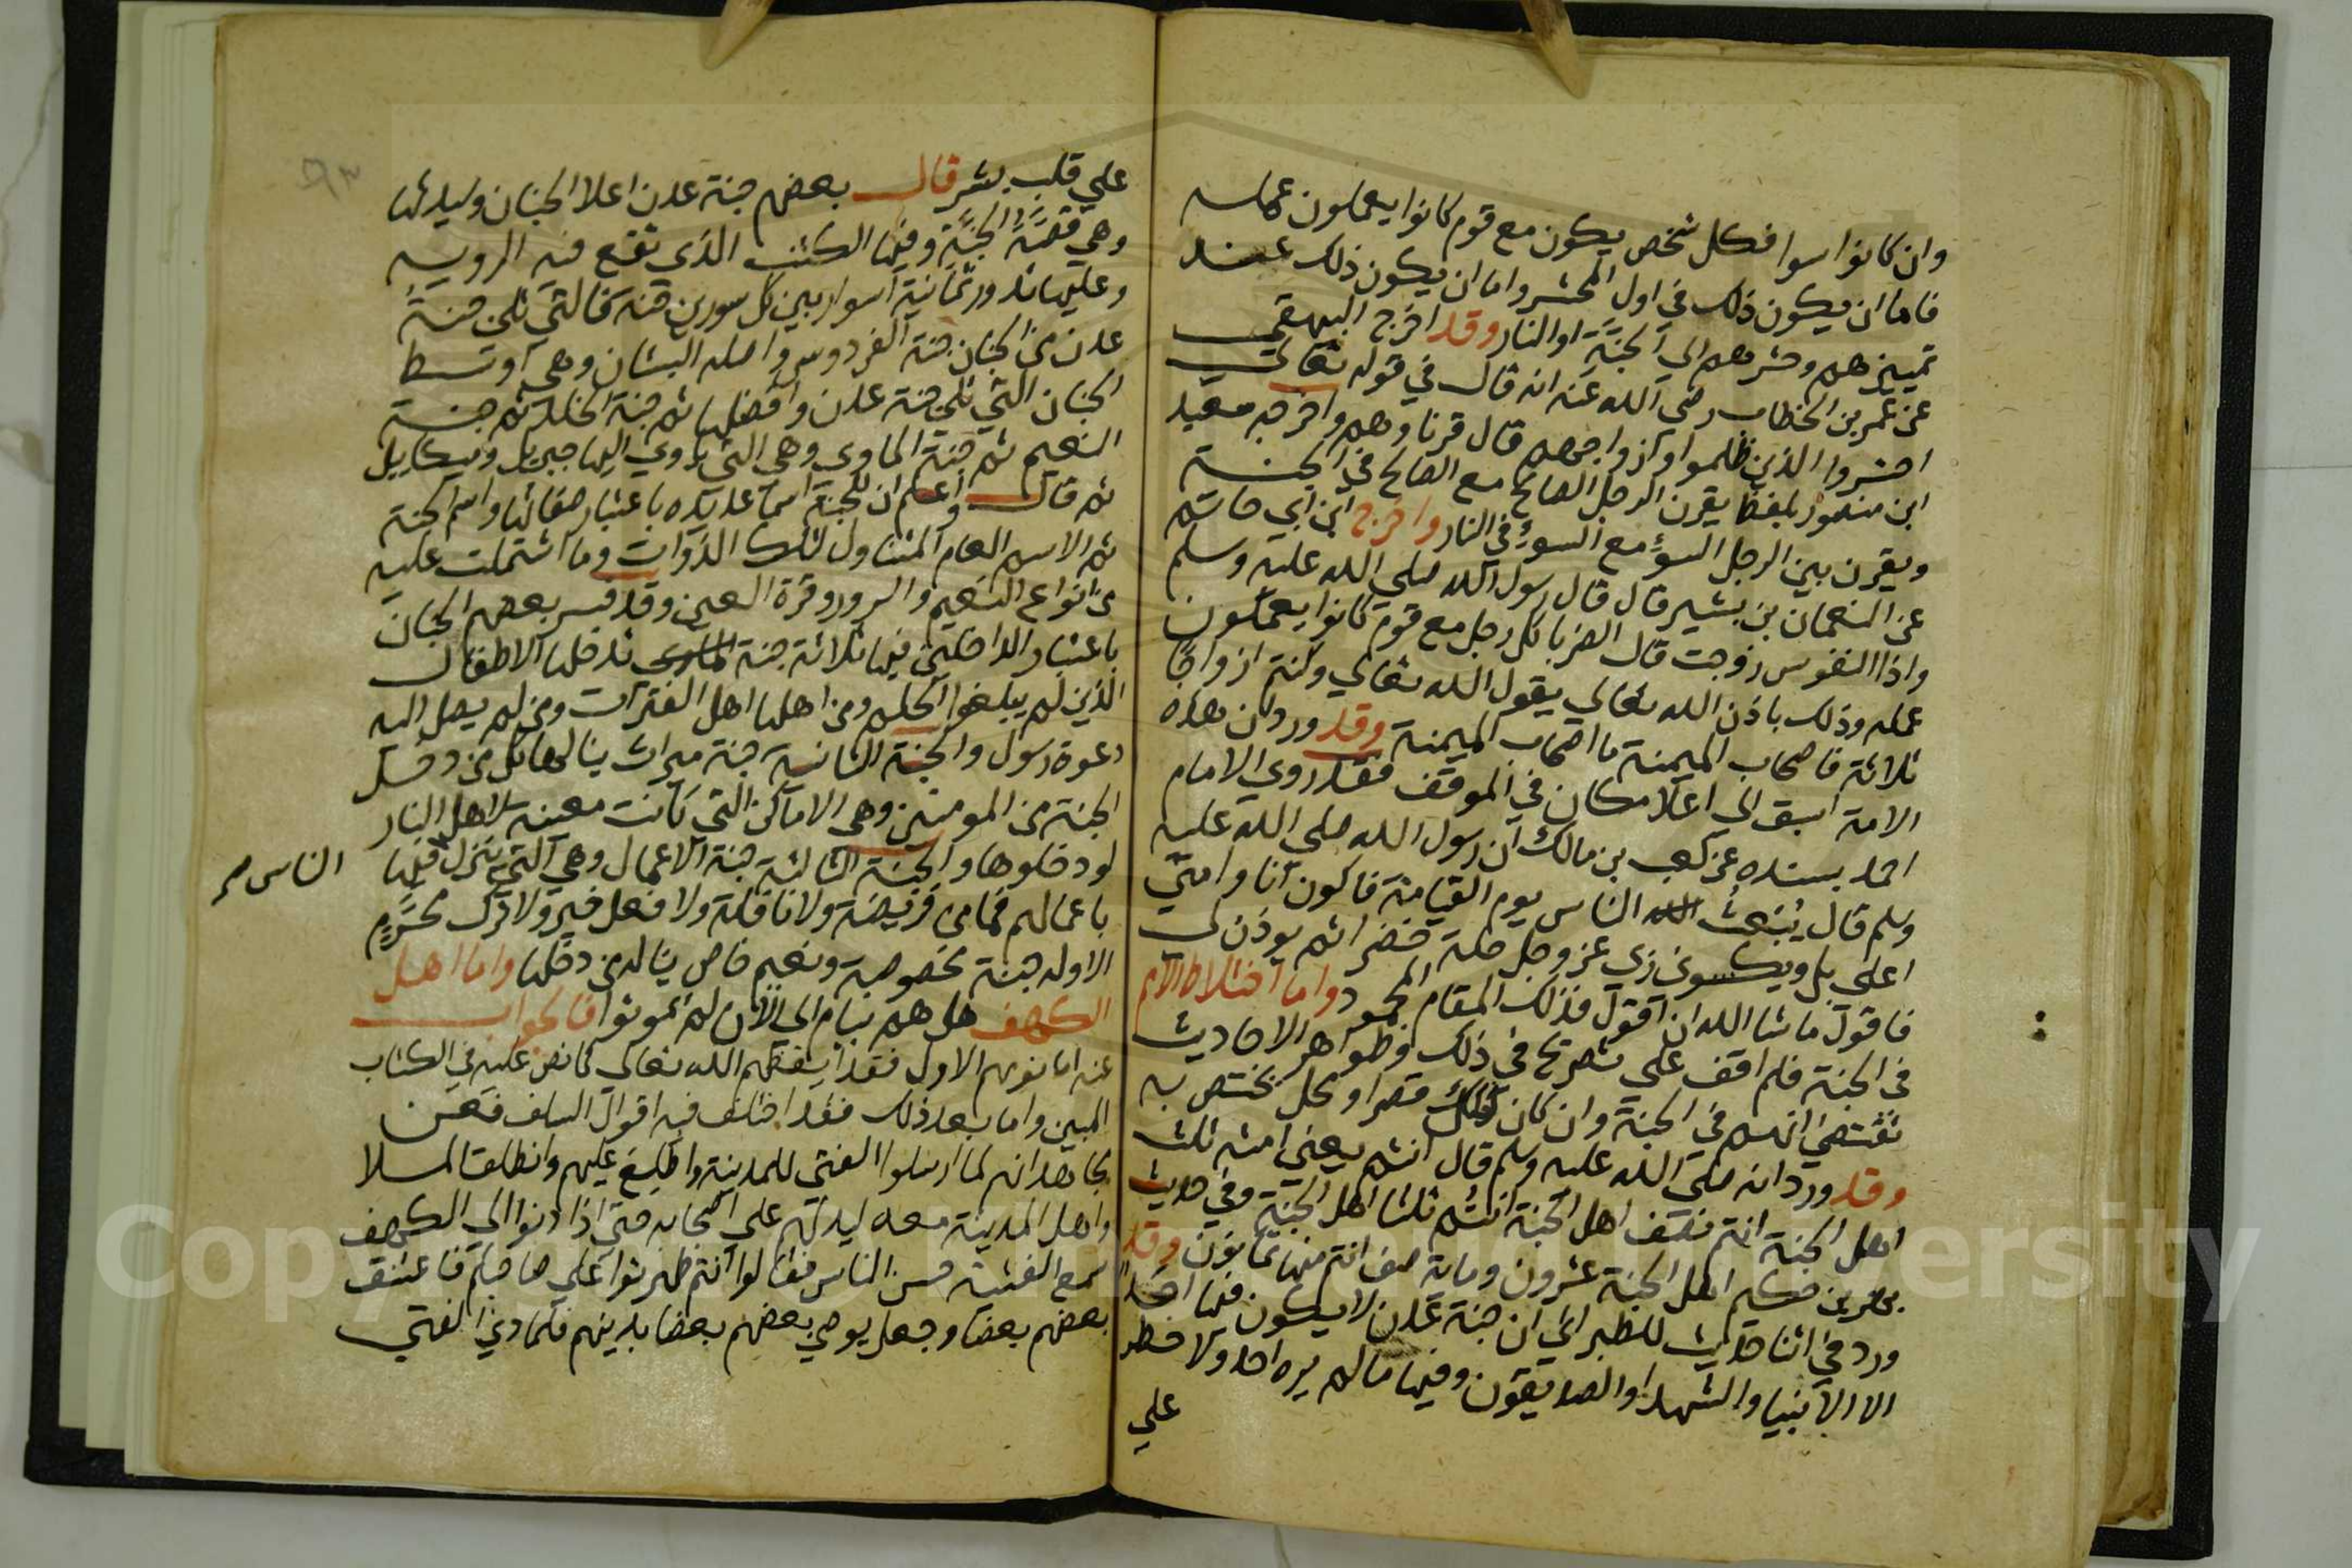 وان كانوا سوا فكل شخص يكون مع قوم كانوا يعملون عمله
فاما ان يكون ذلك في اول المحشر واما ان يكون ذلك عند
تمييزهم وحشرهم الى الجنة او النار وقد اخرج البيهقي
عن عمر بن الخطاب رضي الله عنه انه قال في قوله تعالى
احشروا الذين ظلموا وازواجهم قال قرناوهم واخرجه سعيد
ابن منصور بلفظ يقرن الرجل الصالح مع الصالح في الجنة
ويقرن بين الرجل السوء مع السوء في النار واخرج ابن ابي حاتم
عن النعمان بن بشير قال قال رسول الله صلي الله عليه وسلم
واذا النفوس زوجت قال الضربا كل رجل مع قوم كانوا يعملون
عمله وذلك باذن الله تعالى يقول الله تعالي وكنتم ازواجا
ثلاثة فاصحاب الميمنة ما اصحاب الميمنة وقد ورد ان هذه
الامة اسبق الي اعلا مكان في الموقف فقد روي الامام
احمد بسنده عن كعب بن مالك ان رسول الله صلي الله عليه
وسلم قال يبعث الله الناس يوم القيامة فاكون انا وامتي
اعلى تل ويكسوني ربي عز وجل حلة خضرا ثم يوذن لي
فاقول ما شا الله ان اقول فذلك المقام المحمود واما اختلاط الامم
في الجنة فلم اقف علي تصريح في ذلك وظواهر الاحاديث
تقتضي انهم في الجنة وان كان لكل قصرا ومحل يختص به
وقد ورد انه صلي الله عليه وسلم قال انتم يعني امته ثلث
اهل الجنة انتم نصف اهل الجنة انتم ثلثا اهل الجنة وفي حديث
بهز بن حكيم اهل الجنة عشرون وماية صف انتم منها ثمانون وقد
ورد في اثنا حديث للطبراني ان جنة عدن لا يكون فيها احد
الا الانبيا والشهدا والصديقون وفيها ما لم يره احد ولا خطر
علي
علي قلب بشر قال بعضهم جنة عدن اعلا الجنان وسيدتها
وهي قصبة الجنة وفيها الكثيب الذي تقع فيه الرويه
وعليها تدور ثمانية اسوار بين كل سورين جنة فالتي تلي جنة
عدن من الجنان جنة الفردوس واصله البستان وهي اوسط
الجنان التي تلي جنة عدن وافضلها ثم جنة الخلد ثم جنة
النعيم ثم جنة الماوي وهي التي ياوي اليها جبريل وميكاييل
ثم قال واعلم ان للجنة اسما عديده باعتبار صفاتها واسم الجنة
ثم الاسم العام المتناول لتلك الذوات وما اشتملت عليه
من انواع النعيم والسرور وقرة العين وقد فسر بعضهم الجنان
باعتبار الداخلين فيها ثلاثة جنة الماوى تدخلها الاطفال
الذين لم يبلغوا الحلم ومن اهلها اهل الفترات ومن لم يصل اليه
دعوة رسول والجنة الثانية جنة ميراث ينالها كل من دخل
الجنة من المومنين وهي الاماكن التي كانت معينة لاهل النار
لو دخلوها والجنة الثالثة جنة الاعمال وهي التي ينزل فيها
الناس صح
باعمالهم فما من فريضة ولا نافلة ولا فعل خير ولا ترك محرم
الا وله جنة مخصوصة ونعيم خاص يناله من دخلها واما اهل
الكهف هل هم نيام الي الان لم يموتوا فالجواب
عنه اما نومهم الاول فقد ايقظهم الله تعالى كما نص عليه في الكتاب
المبين واما بعد ذلك فقد اختلف فيه اقوال السلف فعن
مجاهد انهم لما ارسلوا الفتي للمدينة واطلع عليهم وانطلق الملا
واهل المدينة معه ليدلهم علي اصحابه حتي اذا دنوا الي الكهف
سمع الفتية حس الناس فقالوا انتم ظهرتوا علي صاحبكم فاعتنق
بعضهم بعضا وجعل يوصي بعضهم بعضا بدينهم فلما دني الفتي